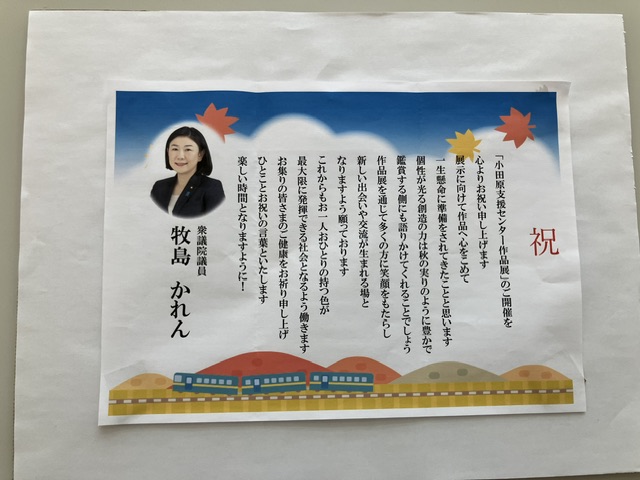 祝
「小田原支援センター作品展」のご開催を
心よりお祝い申し上げます
展示に向けて作品へ心をこめて
一生懸命に準備をされてきたことと思います
個性が光る創造の力は秋の実りのように豊かで
鑑賞する側にも語りかけてくれることでしょう
作品展を通じて多くの方に笑顔をもたらし
新しい出会いや交流が生まれる場と
なりますよう願っております
これからもお一人おひとりの持つ色が
最大限に発揮できる社会となるよう働きます
お集りの皆さまのご健康をお祈り申し上げ
ひとことお祝いの言葉といたします
楽しい時間となりますように！
衆議院議員
牧島 かれん